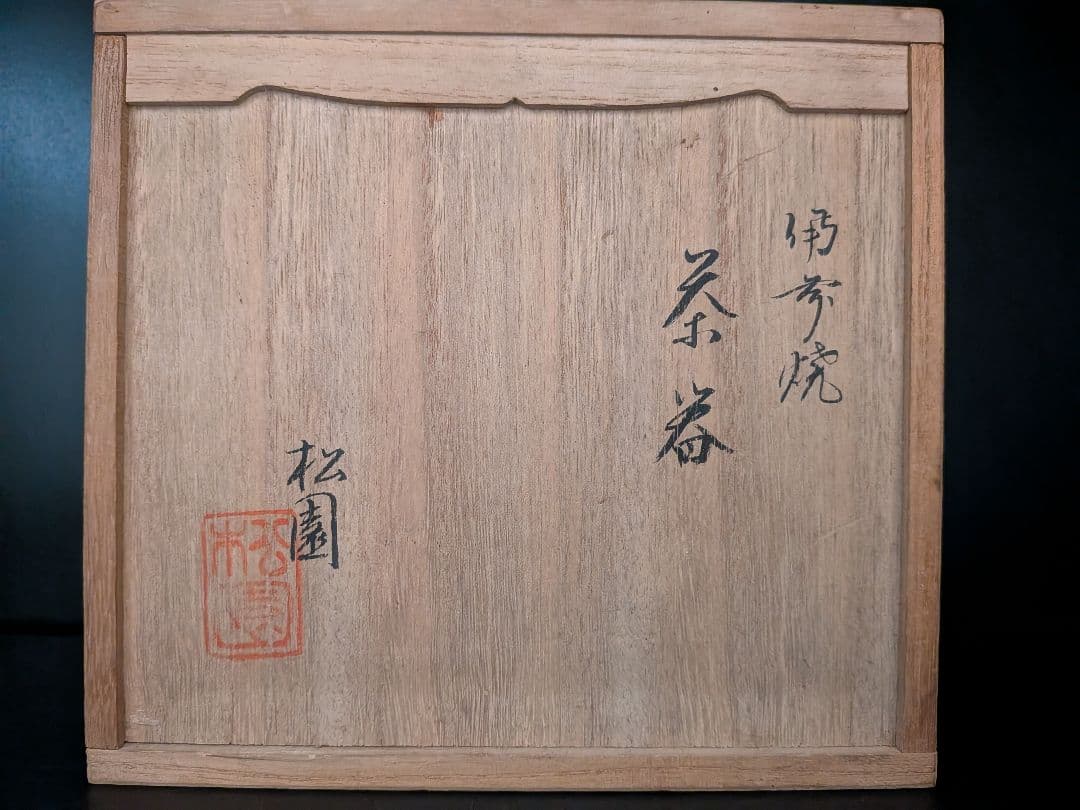 備前焼
茶器
松園
松園